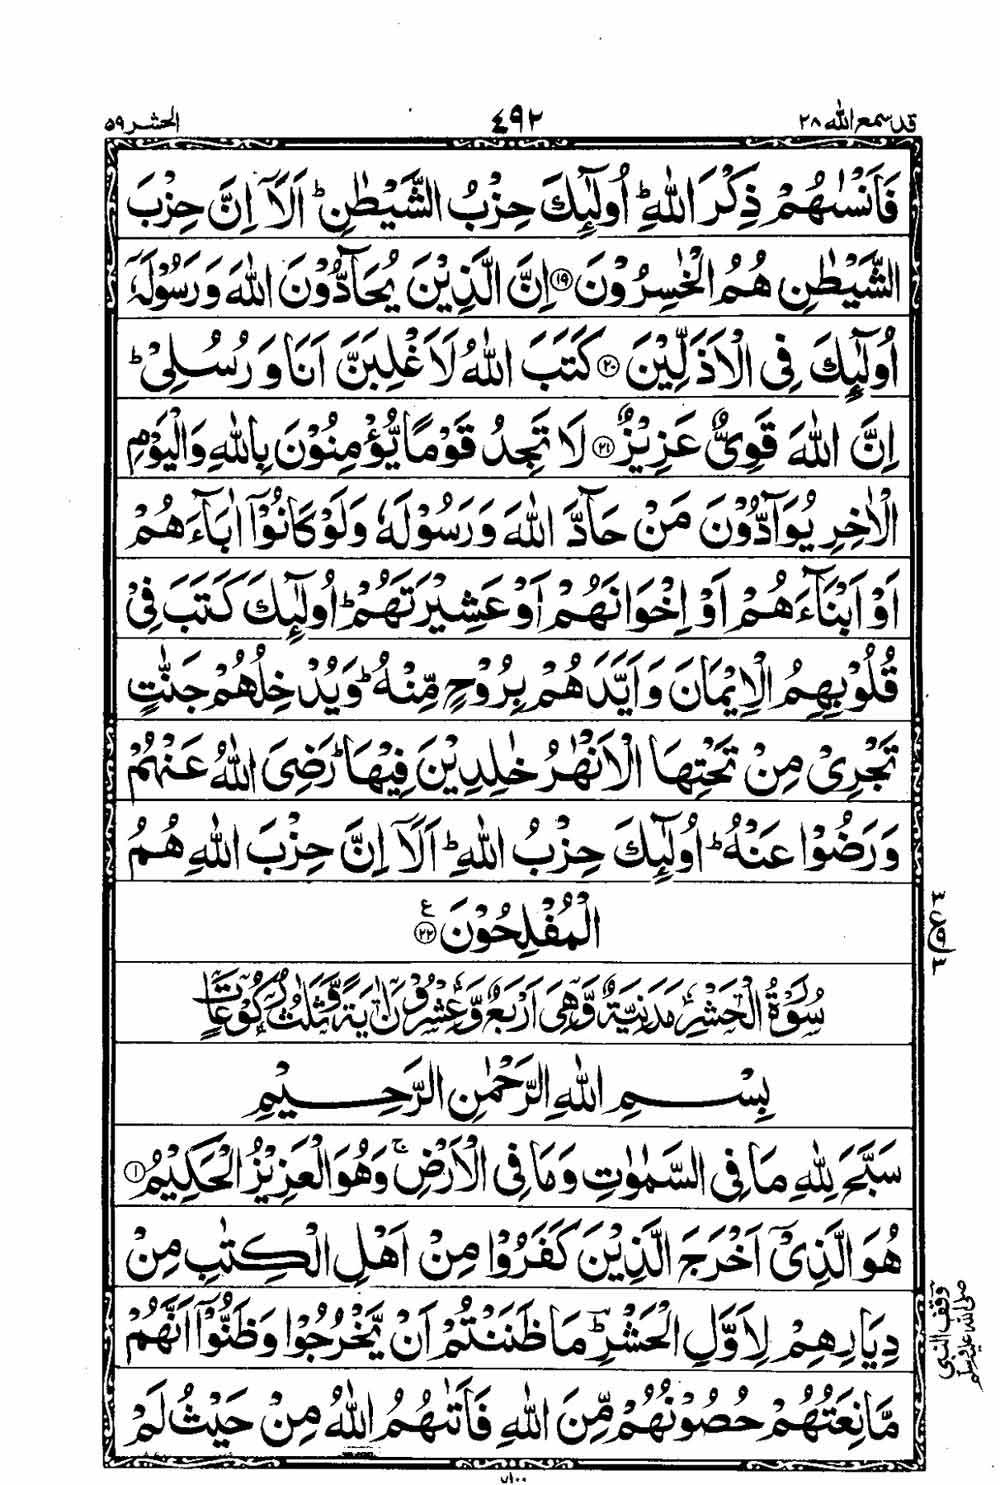 قد سمع الله ۲۸
٤٩٢
الحشر ۵۹
فَاَنْسٰىهُمْ ذِكْرَ اللّٰهِ ؕ اُولٰٓئِكَ حِزْبُ الشَّيْطٰنِ ؕ اَلَاۤ اِنَّ حِزْبَ
الشَّيْطٰنِ هُمُ الْخٰسِرُوْنَ ﴿۱۹﴾ اِنَّ الَّذِيْنَ يُحَآدُّوْنَ اللّٰهَ وَ رَسُوْلَهٗۤ
اُولٰٓئِكَ فِی الْاَذَلِّيْنَ ﴿۲۰﴾ كَتَبَ اللّٰهُ لَاَغْلِبَنَّ اَنَا وَ رُسُلِیْ ؕ
اِنَّ اللّٰهَ قَوِیٌّ عَزِيْزٌ ﴿۲۱﴾ لَا تَجِدُ قَوْمًا يُّؤْمِنُوْنَ بِاللّٰهِ وَ الْيَوْمِ
الْاٰخِرِ يُوَآدُّوْنَ مَنْ حَآدَّ اللّٰهَ وَ رَسُوْلَهٗ وَ لَوْ كَانُوْۤا اٰبَآءَهُمْ
اَوْ اَبْنَآءَهُمْ اَوْ اِخْوَانَهُمْ اَوْ عَشِيْرَتَهُمْ ؕ اُولٰٓئِكَ كَتَبَ فِیْ
قُلُوْبِهِمُ الْاِيْمَانَ وَ اَيَّدَهُمْ بِرُوْحٍ مِّنْهُ ؕ وَ يُدْخِلُهُمْ جَنّٰتٍ
تَجْرِیْ مِنْ تَحْتِهَا الْاَنْهٰرُ خٰلِدِيْنَ فِيْهَا ؕ رَضِیَ اللّٰهُ عَنْهُمْ
وَ رَضُوْا عَنْهُ ؕ اُولٰٓئِكَ حِزْبُ اللّٰهِ ؕ اَلَاۤ اِنَّ حِزْبَ اللّٰهِ هُمُ
الْمُفْلِحُوْنَ ﴿۲۲﴾ ع
سُوْرَةُ الْحَشْرِ مَدَنِيَّةٌ وَّهِیَ اَرْبَعٌ وَّعِشْرُوْنَ اٰيَةً وَّثَلٰثُ رُكُوْعَاتٍ
بِسْمِ اللّٰهِ الرَّحْمٰنِ الرَّحِيْمِ
سَبَّحَ لِلّٰهِ مَا فِی السَّمٰوٰتِ وَ مَا فِی الْاَرْضِ ۚ وَ هُوَ الْعَزِيْزُ الْحَكِيْمُ ﴿۱﴾
هُوَ الَّذِیْۤ اَخْرَجَ الَّذِيْنَ كَفَرُوْا مِنْ اَهْلِ الْكِتٰبِ مِنْ
دِيَارِهِمْ لِاَوَّلِ الْحَشْرِ ؕ مَا ظَنَنْتُمْ اَنْ يَّخْرُجُوْا وَ ظَنُّوْۤا اَنَّهُمْ
مَّانِعَتُهُمْ حُصُوْنُهُمْ مِّنَ اللّٰهِ فَاَتٰىهُمُ اللّٰهُ مِنْ حَيْثُ لَمْ
وقف النبی
صلی الله علیه وسلم